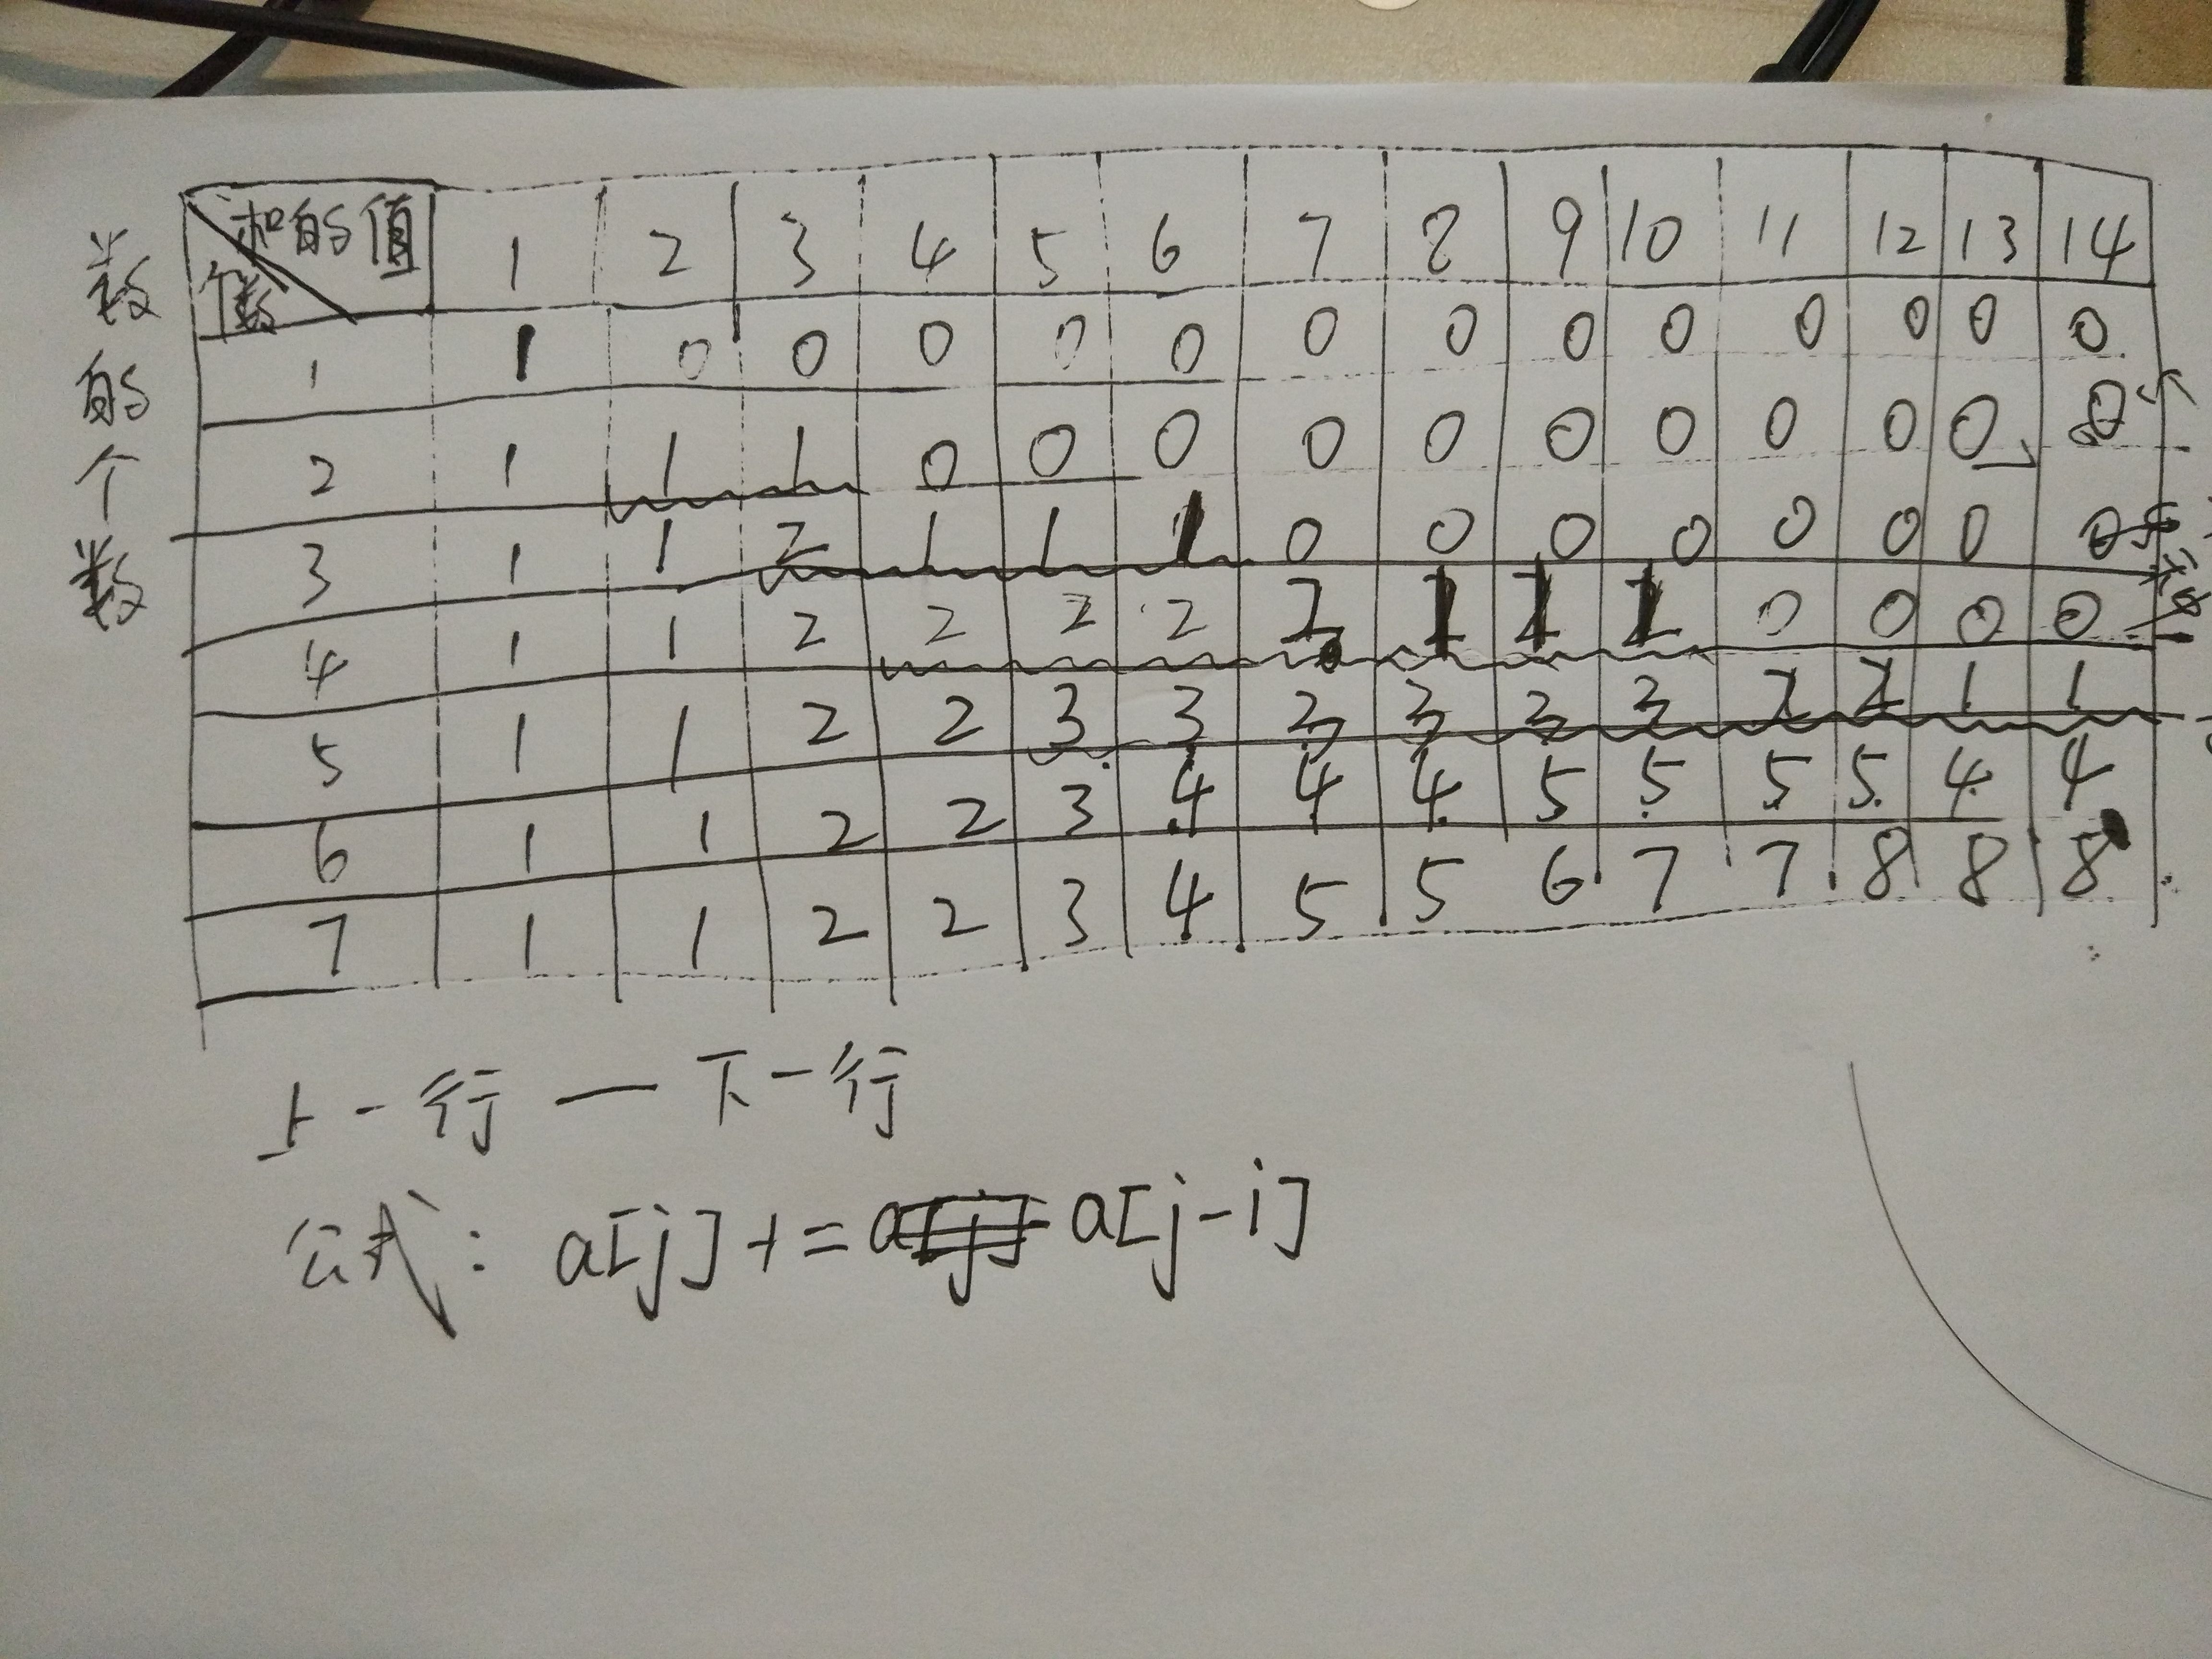 数的个数
和的值 1 2 3 4 5 6 7 8 9 10 11 12 13 14
个数
1 1 0 0 0 0 0 0 0 0 0 0 0 0 0
2 1 1 1 0 0 0 0 0 0 0 0 0 0 0
3 1 1 2 1 1 1 0 0 0 0 0 0 0 0
4 1 1 2 2 2 2 2 1 1 1 0 0 0 0
5 1 1 2 2 3 3 3 3 3 3 2 2 1 1
6 1 1 2 2 3 4 4 4 5 5 5 5 4 4
7 1 1 2 2 3 4 5 5 6 7 7 8 8 8
上一行一下一行
公式: a[j]+= a[j-i]